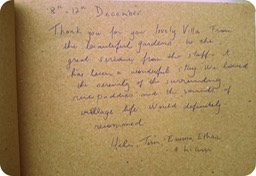 8th - 12th December
Thank you for your lovely Villa. From
the beautiful gardens to the
great service from the staff - it
has been a wonderful stay. We loved
the serenity of the surrounding
rice paddies and the sounds of
village life. Would definitely
recommend.
Tom, Emma, Ethan